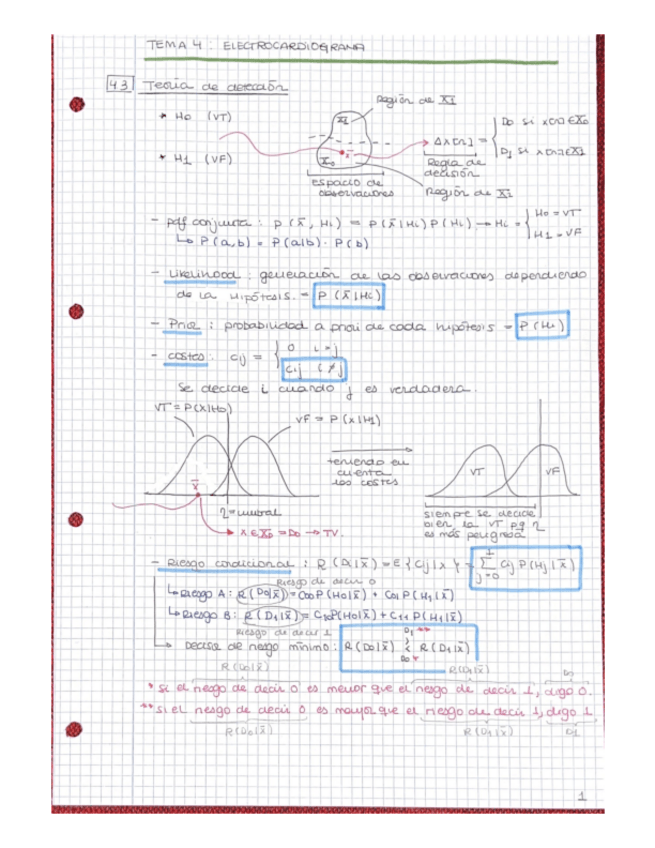 TEMA 4 : ELECTROCARDIOGRAMA
4.3 Teoría de detección
* H0 (VT)
* H1 (VF)
Región de X1
X1
X0
x̄
espacio de observaciones
Región de X1
Δx[n] = { D0 si x[n] ∈ X0
D1 si x[n] ∈ X1
Regla de decisión
- pdf conjunta : p (x̄, Hi) = P(x̄|Hi) P(Hi) → Hi = { H0 = VT
H1 = VF
↳ P(a,b) = P(a|b) · P(b)
- Likelihood : generación de las observaciones dependiendo
de la hipótesis = P (x̄|Hi)
- Prior : probabilidad a priori de cada hipótesis = P(Hi)
- costes : Cij = { 0 i = j
Cij i ≠ j
Se decide i cuando j es verdadera.
VT = P(x|H0)
VF = P(x|H1)
x̄
η = umbral
x ∈ X0 = D0 → TV.
teniendo en cuenta los costes
VT
VF
siempre se decide
bien la VT pq η
es más peligrosa
- Riesgo condicional : R (Di|x̄) = E { Cij|x } = Σ j=0 1 Cij P(Hj|x̄)
Riesgo de decir 0
↳ Riesgo A : R (D0|x̄) = C00 P(H0|x̄) + C01 P(H1|x̄)
↳ Riesgo B : R (D1|x̄) = C10 P(H0|x̄) + C11 P(H1|x̄)
Riesgo de decir 1
→ Decisor de riesgo mínimo : R(D0|x̄) D1 ** > < D0 * R(D1|x̄)
R(D0|x̄) R(D1|x̄) D0
* si el riesgo de decir 0 es menor que el riesgo de decir 1, digo 0.
** si el riesgo de decir 0 es mayor que el riesgo de decir 1, digo 1.
R(D0|x̄) R(D1|x̄) D1
1